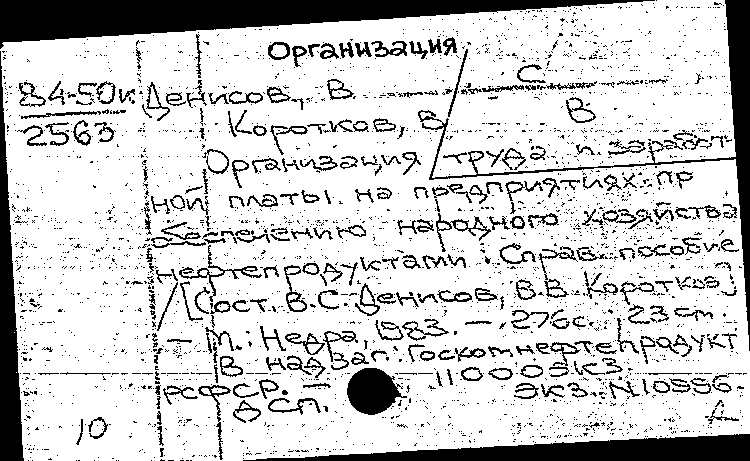 Организация
84-50к Денисов, В С
2563 Коротков, В В
Организация труда и заработ-
ной платы на предприятиях пр
обеспечению народного хозяйства
нефтепродуктами. Справ. пособие
[Сост. В.С. Денисов, В.В. Коротков]
— М.: Недра, 1983. — 276с.; 23 cm.
В надзаг: Госкомнефтепродукт
РСФСР. — 11000 экз.
ДСП. экз. N10556
10